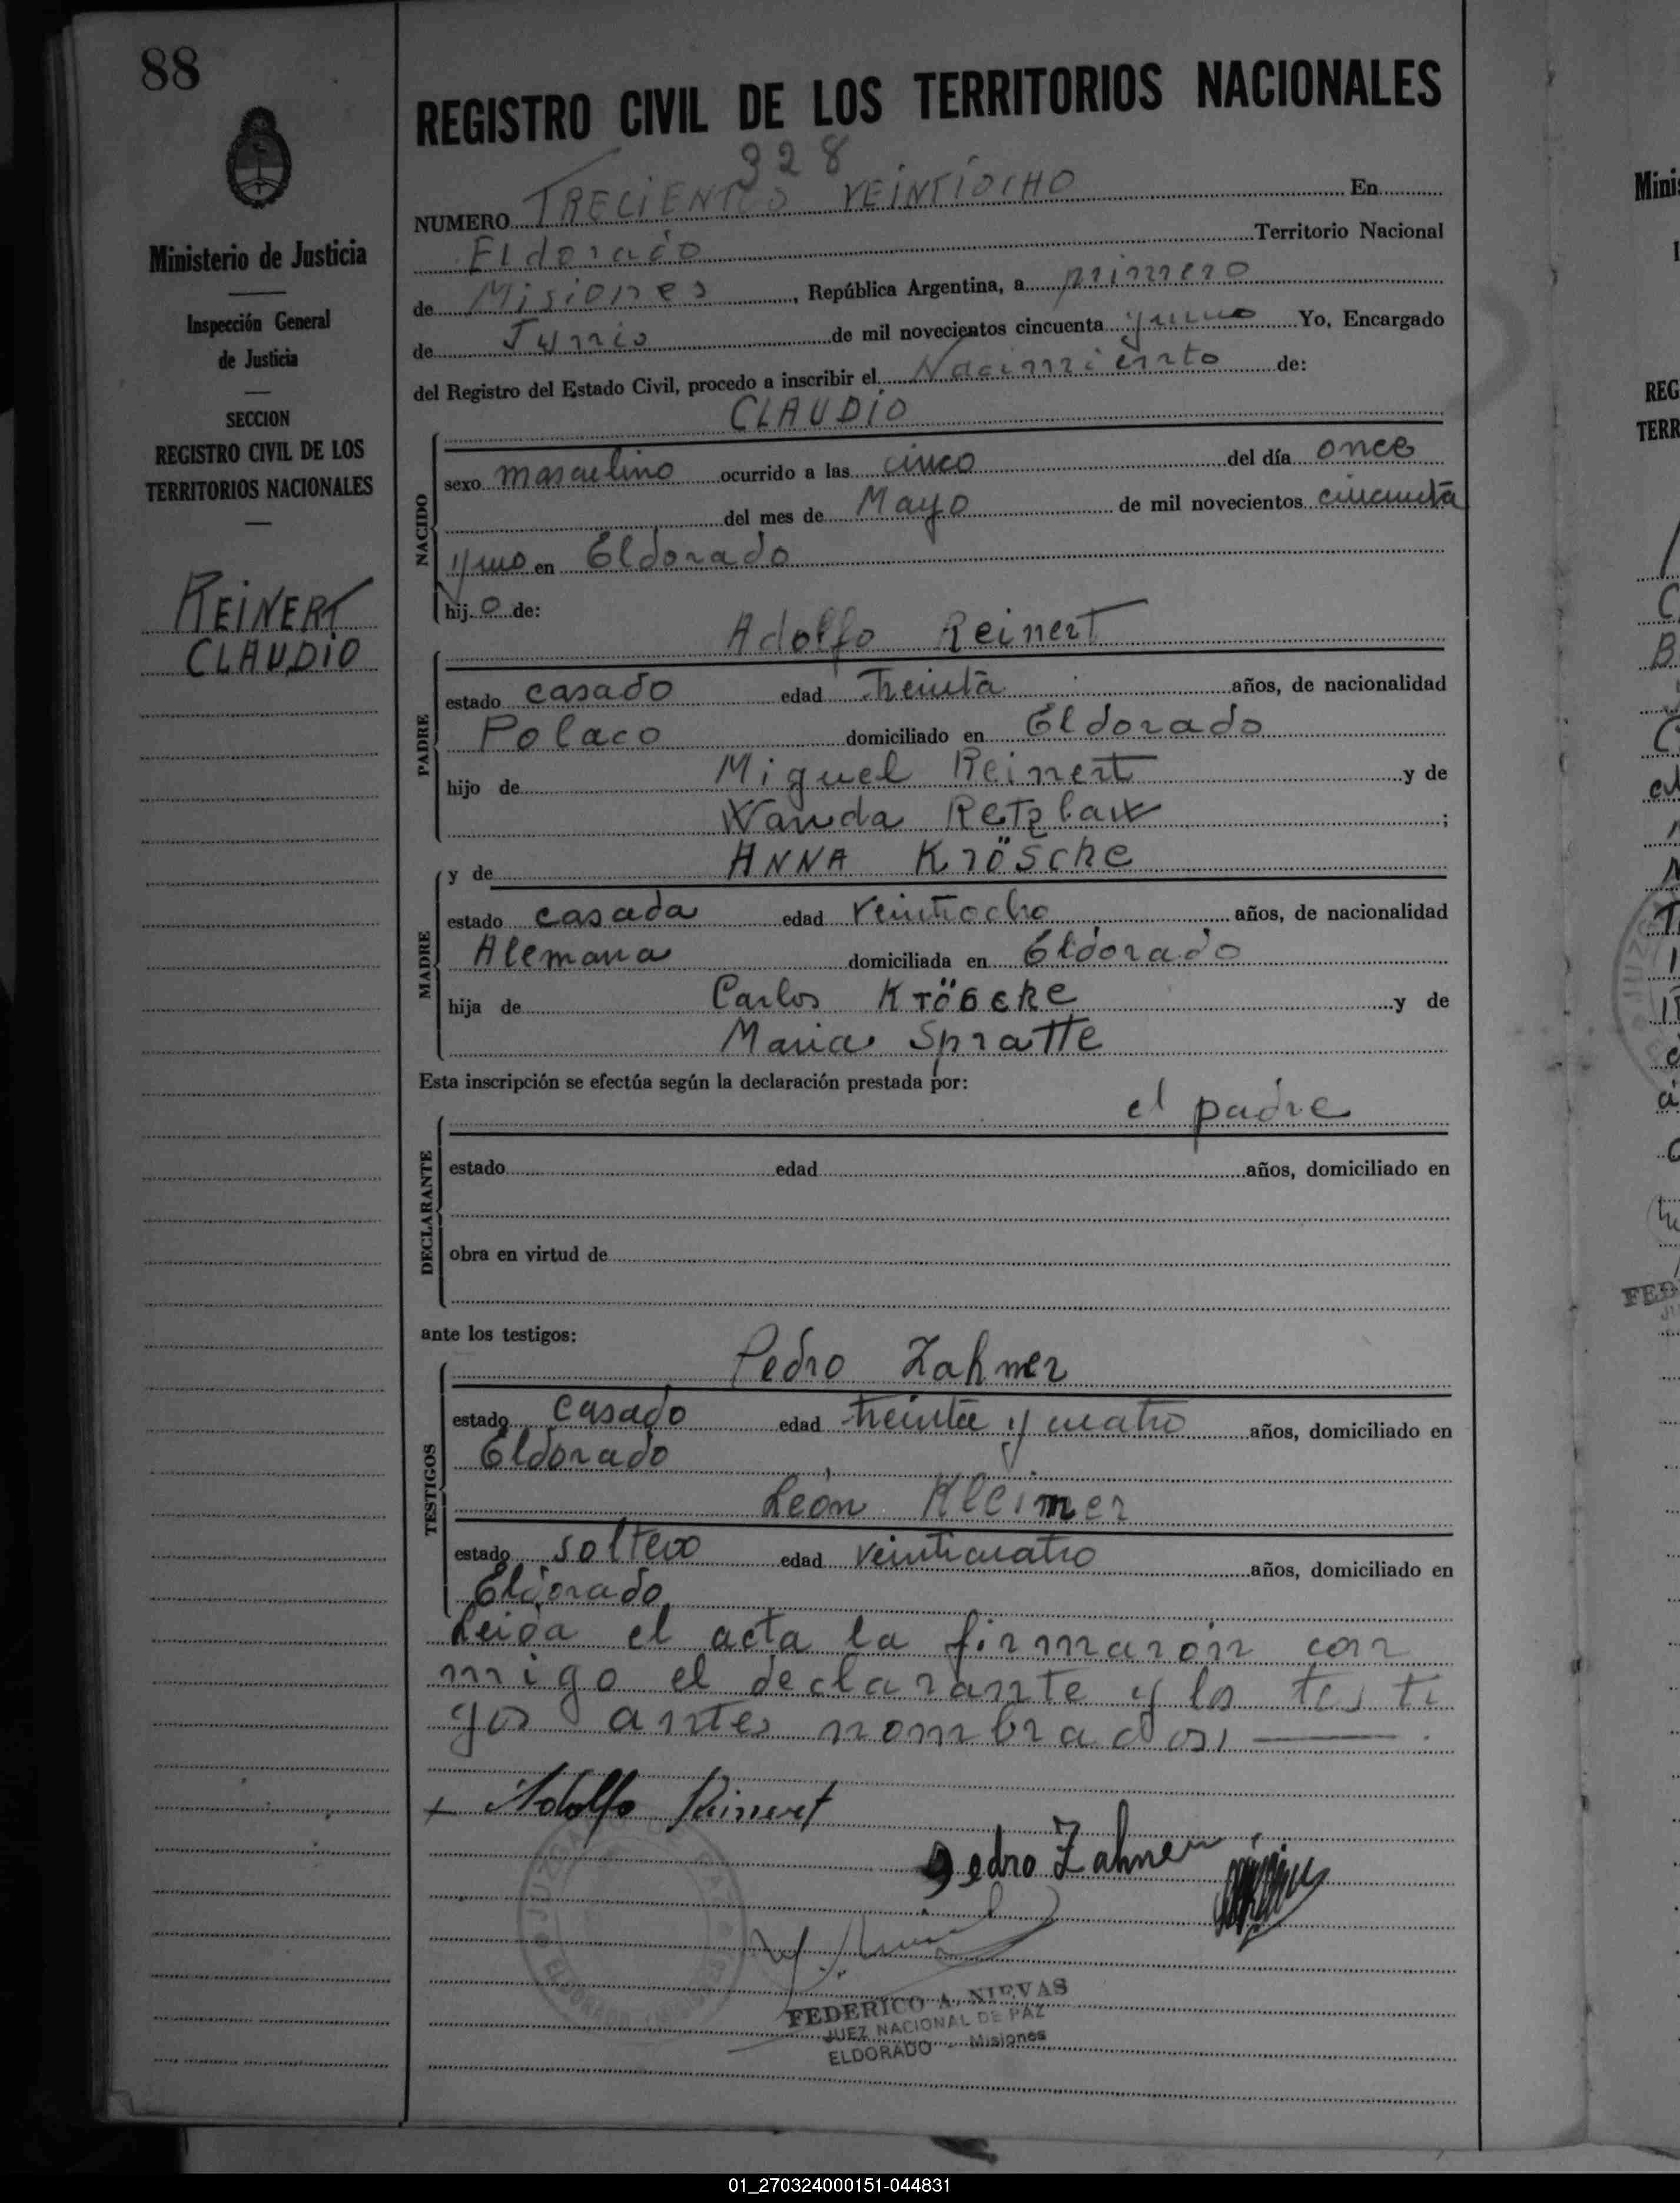 88
Ministerio de Justicia
Inspección General
de Justicia
SECCION
REGISTRO CIVIL DE LOS
TERRITORIOS NACIONALES
REINERT
CLAUDIO
REGISTRO CIVIL DE LOS TERRITORIOS NACIONALES
328
NUMERO TRECIENTOS VEINTIOCHO En
Eldorado Territorio Nacional
de Misiones, República Argentina, a primero
de Junio de mil novecientos cincuenta y uno Yo, Encargado
del Registro del Estado Civil, procedo a inscribir el Nacimiento de:
CLAUDIO
NACIDO
sexo masculino ocurrido a las cinco del día once
del mes de Mayo de mil novecientos cincuenta
y uno en Eldorado
hij o de:
Adolfo Reinert
PADRE
estado casado edad Treinta años, de nacionalidad
Polaco domiciliado en Eldorado
hijo de Miguel Reinert y de
Wanda Retzlaw ;
MADRE
y de ANNA Krösche
estado casada edad veintiocho años, de nacionalidad
Alemana domiciliada en Eldorado
hija de Carlos Krösche y de
Maria Spratte
Esta inscripción se efectúa según la declaración prestada por:
el padre
DECLARANTE
estado edad años, domiciliado en
obra en virtud de
ante los testigos:
Pedro Zahner
TESTIGOS
estado casado edad treinta y cuatro años, domiciliado en
Eldorado
León Kleimer
estado soltero edad veinticuatro años, domiciliado en
Eldorado
Leida el acta la firmaron con
migo el declarante y los testi
gos antes nombrados,
Adolfo Reinert
Pedro Zahner
FEDERICO A. NIEVAS
JUEZ NACIONAL DE PAZ
ELDORADO - Misiones
01_270324000151-044831